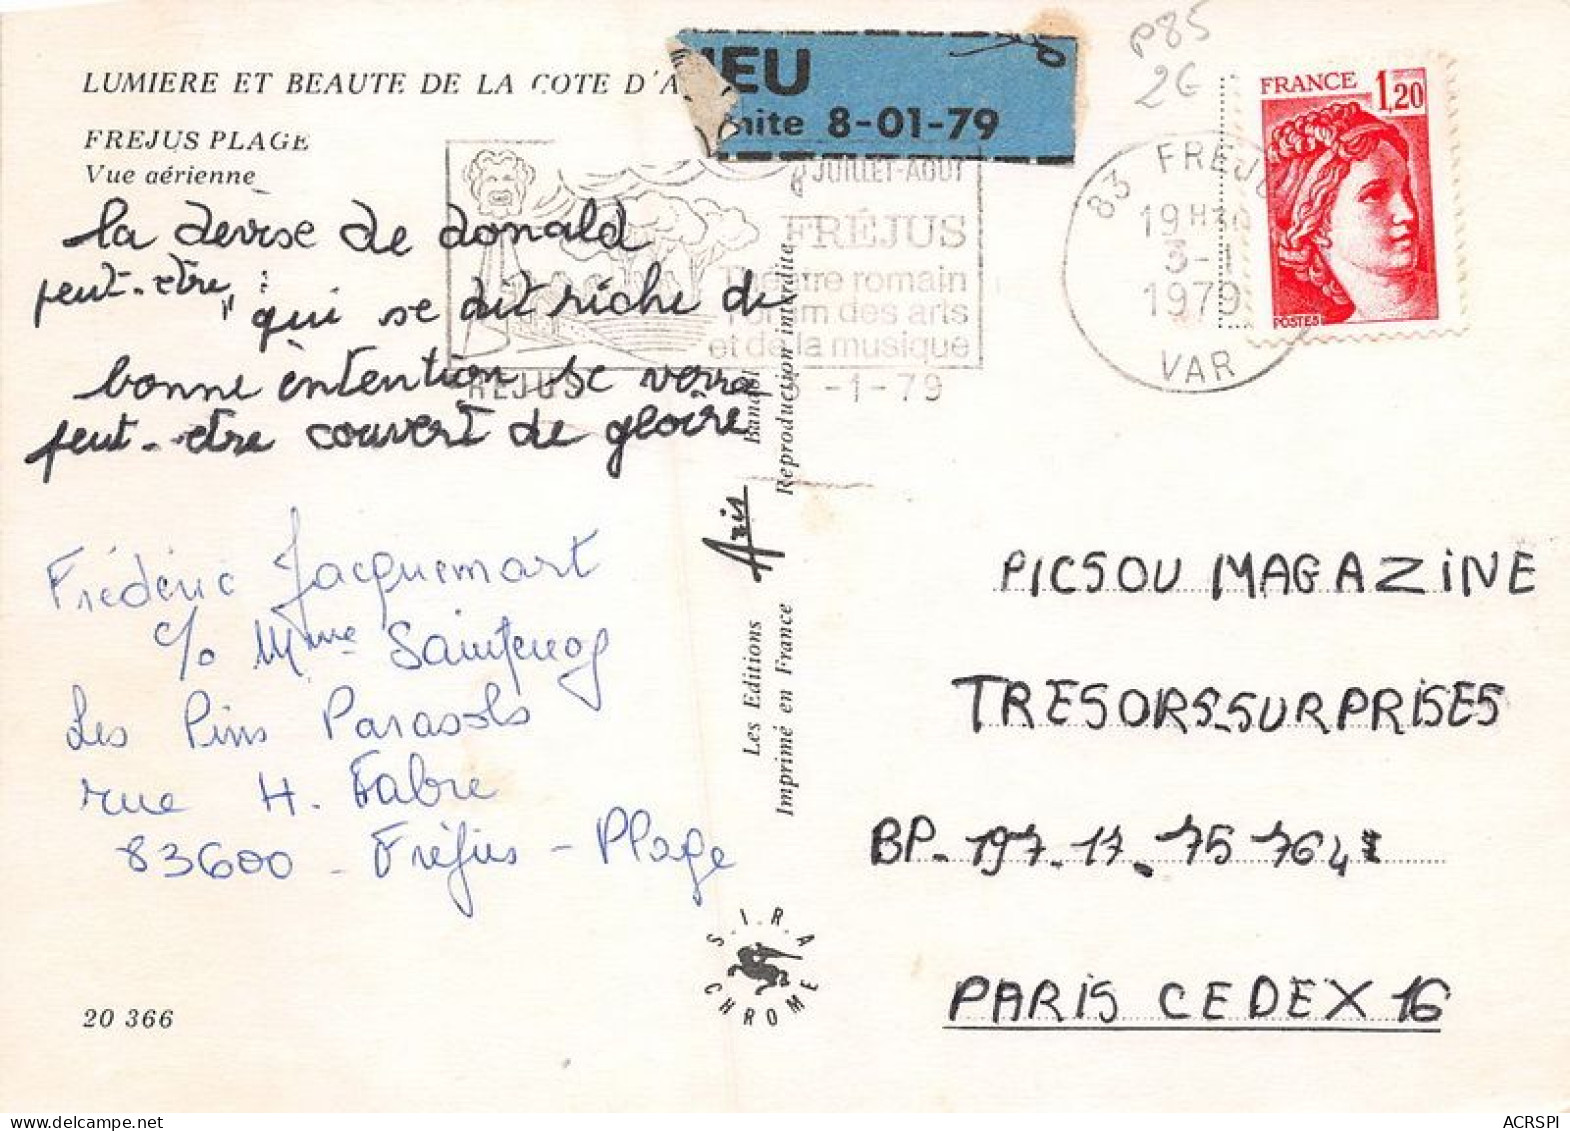 LUMIERE ET BEAUTE DE LA COTE D'A
FREJUS PLAGE
Vue aérienne
IEU
mite 8-01-79
P85
2G
FRANCE 1,20
POSTES
83 FREJU
19H
3-1
1979
VAR
JUILLET-AOUT
FRÉJUS
Théâtre romain
Forum des arts
et de la musique
FREJUS
3-1-79
la devise de donald
peut-etre :
"qui se dit riche de
bonne intention se verra
peut-etre couvert de gloire
Frédéric Jacquemart
c/o Mme
Les Pins Parasols
rue H. Fabre
83600 - Fréjus - Plage
20 366
Les Editions Aris Bandol
Imprimé en France Reproduction interdite
S.I.R.A
CHROME
PICSOU MAGAZINE
TRESORS-SURPRISES
BP-197-17.75764
PARIS CEDEX 16
ACRSPI